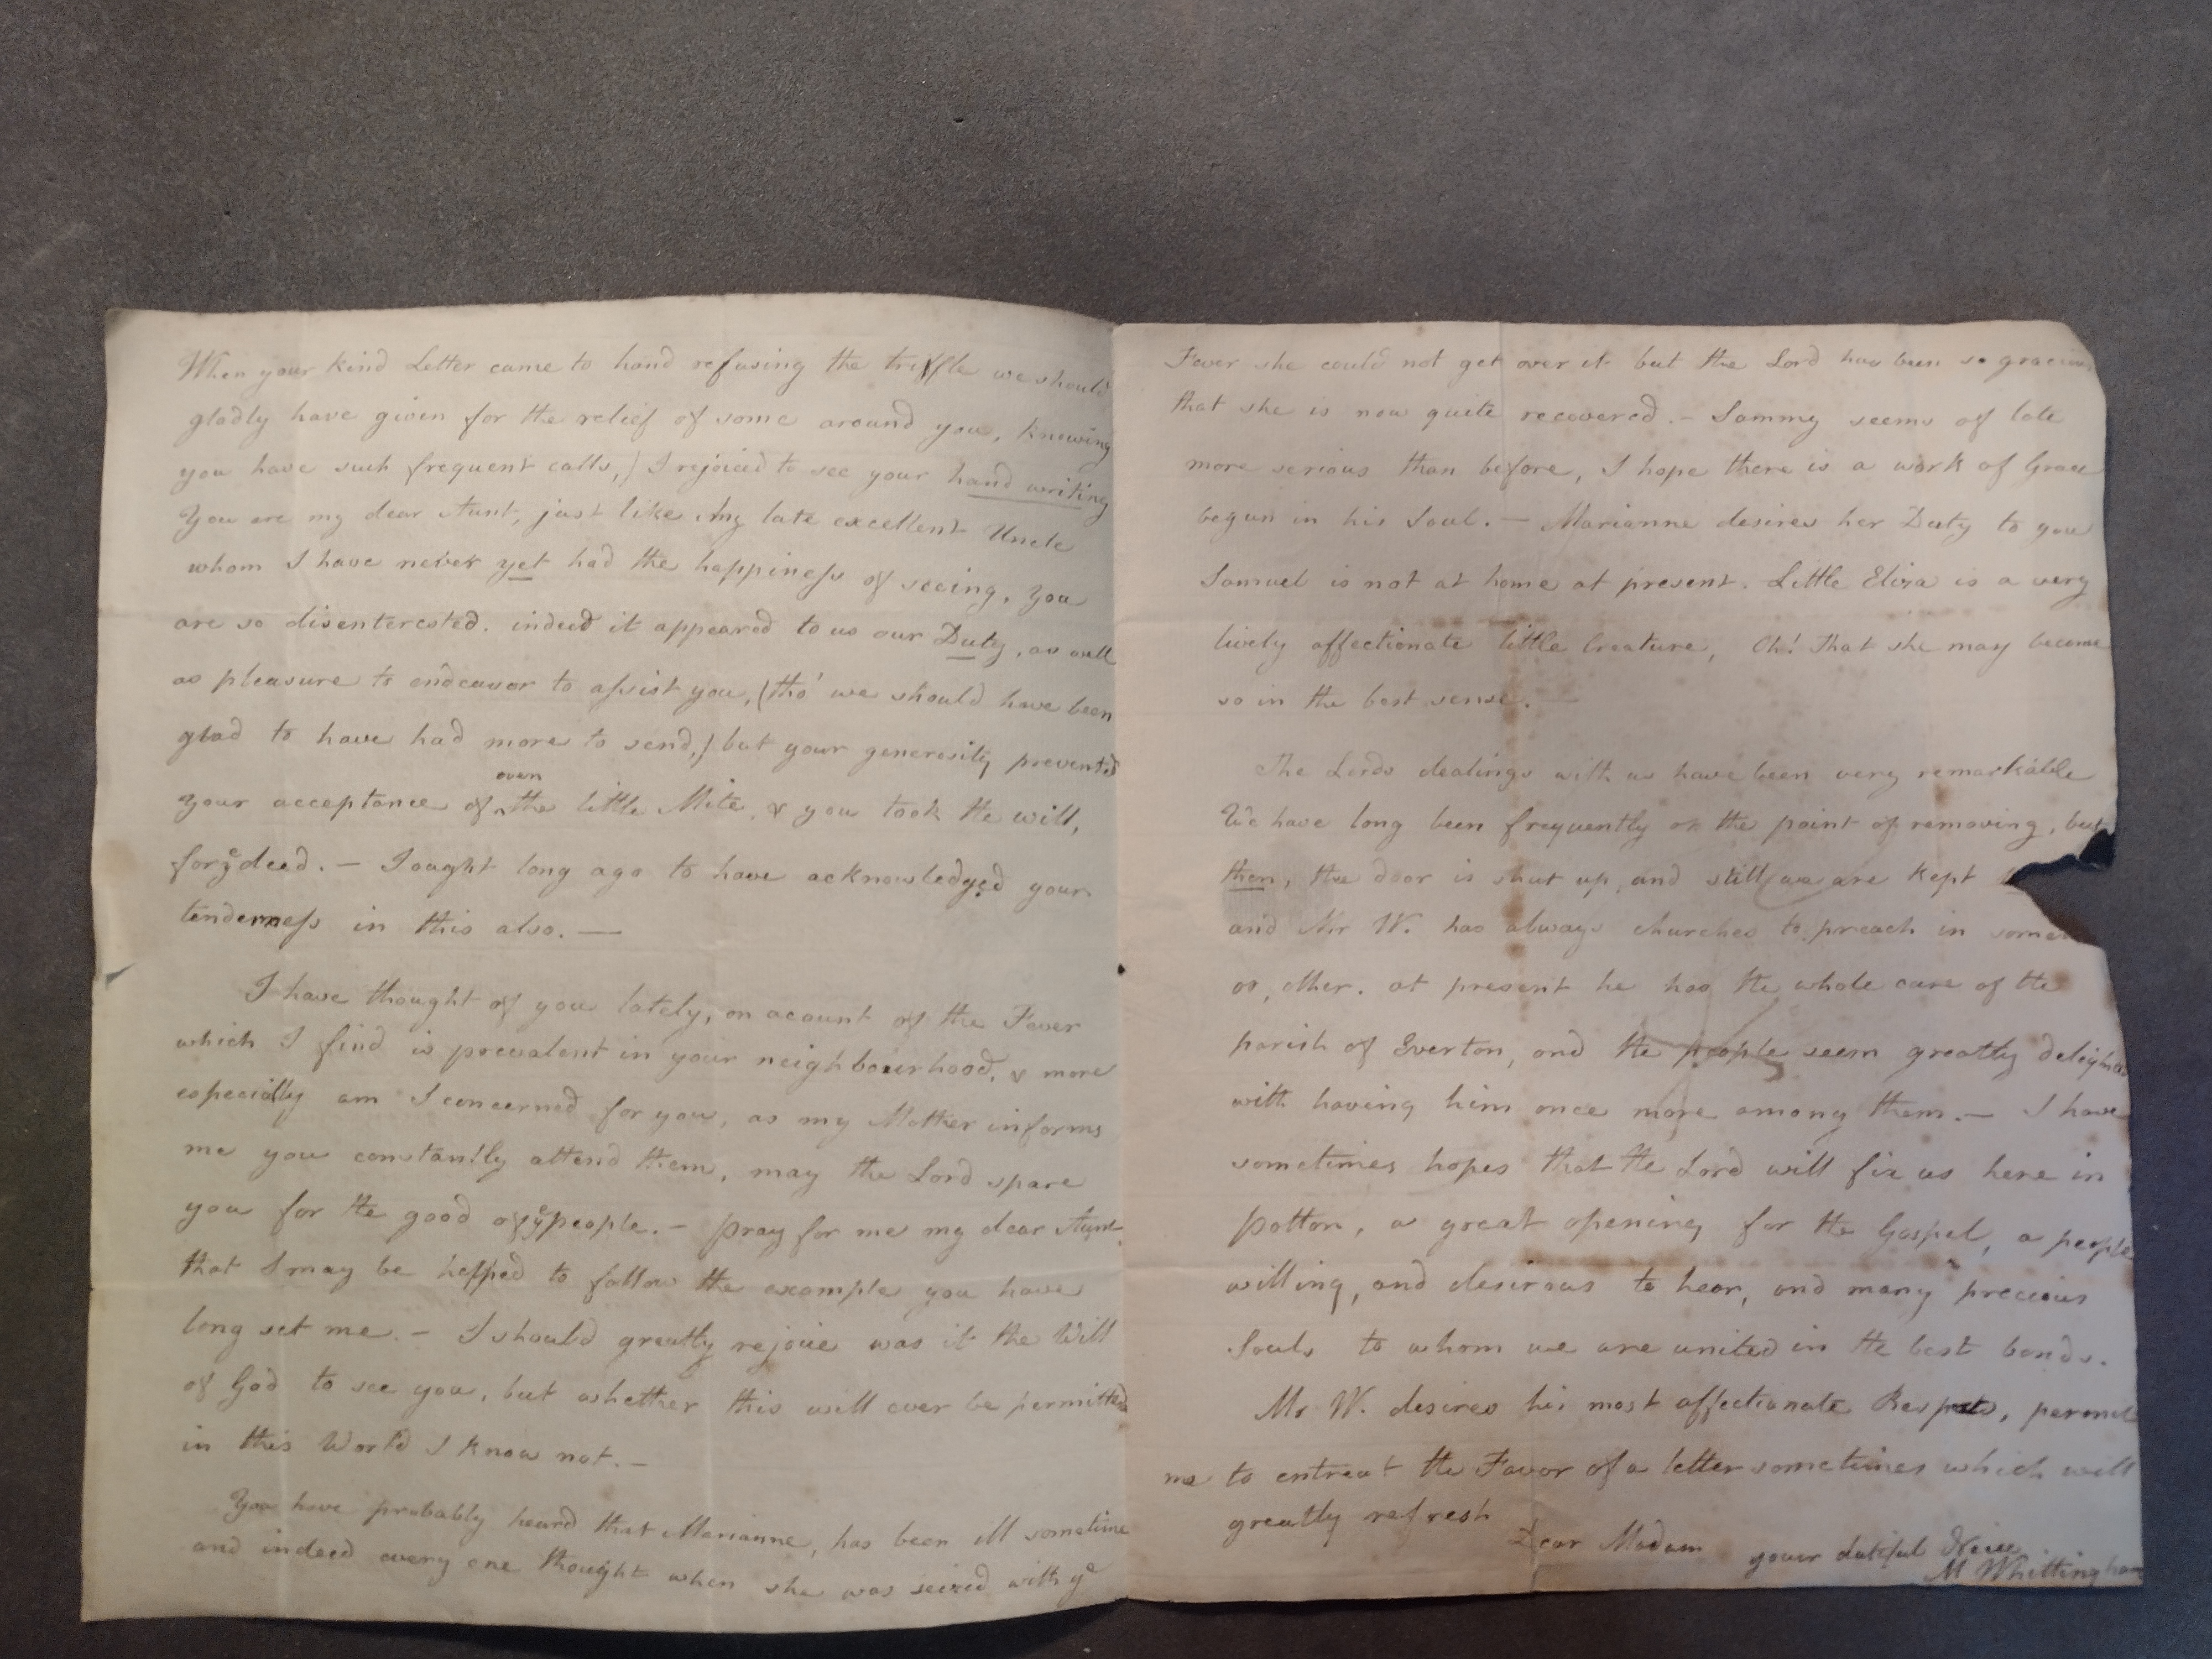 When your kind Letter came to hand refusing the triffle we should
gladly have given for the relief of some around you, knowing
you have such frequent calls,) I rejoiced to see your hand writing
You are my dear Aunt, just like my late excellent Uncle
whom I have never yet had the happiness of seeing, you
are so disenterested. indeed it appeared to us our Duty, as well
as pleasure to endeavor to assist you, (tho' we should have been
glad to have had more to send,) but your generosity prevented
your acceptance of even the little Mite, & you took the will,
for ye deed. — I ought long ago to have acknowledged your
tenderness in this also. —
I have thought of you lately, on acount of the Fever
which I find is prevalent in your neighbourhood, & more
especially am I concerned for you, as my Mother informs
me you constantly attend them, may the Lord spare
you for the good of ye people. — pray for me my dear Aunt,
that I may be helped to follow the example you have
long set me. — I should greatly rejoice was it the Will
of God to see you, but whether this will ever be permitted
in this World I know not. —
You have probably heard that Marianne, has been ill sometime
and indeed every one thought when she was seized with ye
Fever she could not get over it but the Lord has been so gracious
that she is now quite recovered. — Sammy seems of late
more serious than before, I hope there is a work of Grace
begun in his Soul. — Marianne desires her Duty to you
Samuel is not at home at present. Little Eliza is a very
lively affectionate little Creature, Oh! that she may become
so in the best sense. —
The Lords dealings with us have been very remarkable
We have long been frequently on the point of removing, but
then, the door is shut up, and still we are kept
and Mr W. has always churches to preach in some
or, other. at present he has the whole care of the
parish of Everton, and the people seem greatly delighted
with having him once more among them. — I have
sometimes hopes that the Lord will fix us here in
potton, a great opening for the Gospel, a people
willing, and desirous to hear, and many precious
Souls to whom we are united in the best bonds.
Mr W. desires his most affectionate Respects, permit
me to entreat the Favor of a letter sometimes which will
greatly refresh
Dear Madam
your dutiful Niece
M Whittingham